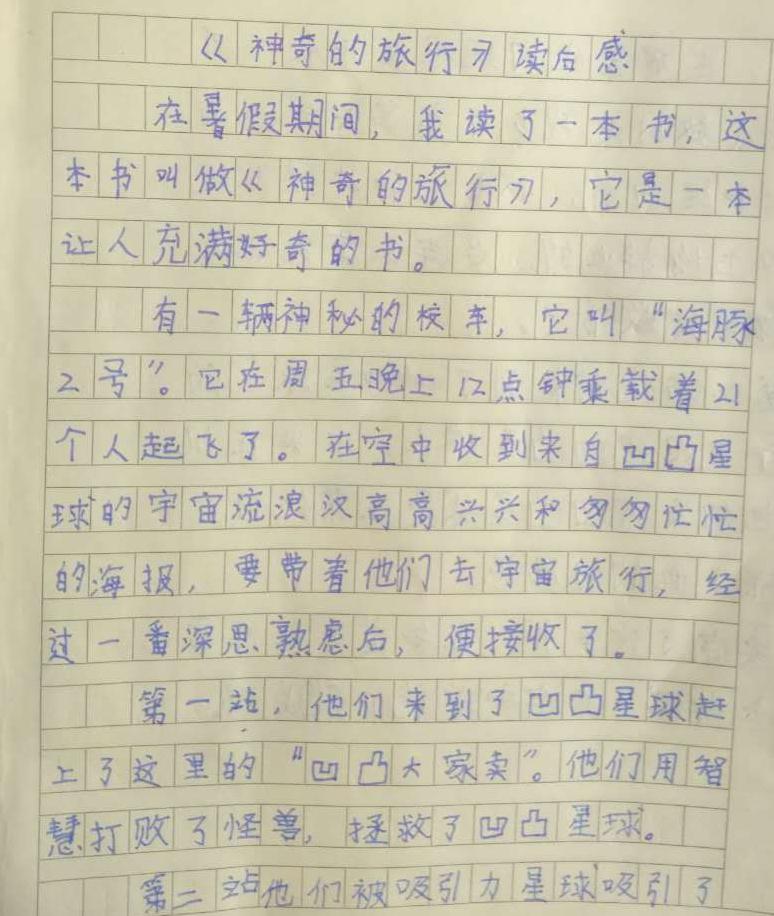 《神奇的旅行》读后感
在暑假期间，我读了一本书，这
本书叫做《神奇的旅行》，它是一本
让人充满好奇的书。
有一辆神秘的校车，它叫“海豚
2号”。它在周五晚上12点钟乘载着21
个人起飞了。在空中收到来自凹凸星
球的宇宙流浪汉高高兴兴和匆匆忙忙
的海报，要带着他们去宇宙旅行，经
过一番深思熟虑后，便接收了。
第一站，他们来到了凹凸星球赶
上了这里的“凹凸大家卖”。他们用智
慧打败了怪兽，拯救了凹凸星球。
第二站他们被吸引力星球吸引了